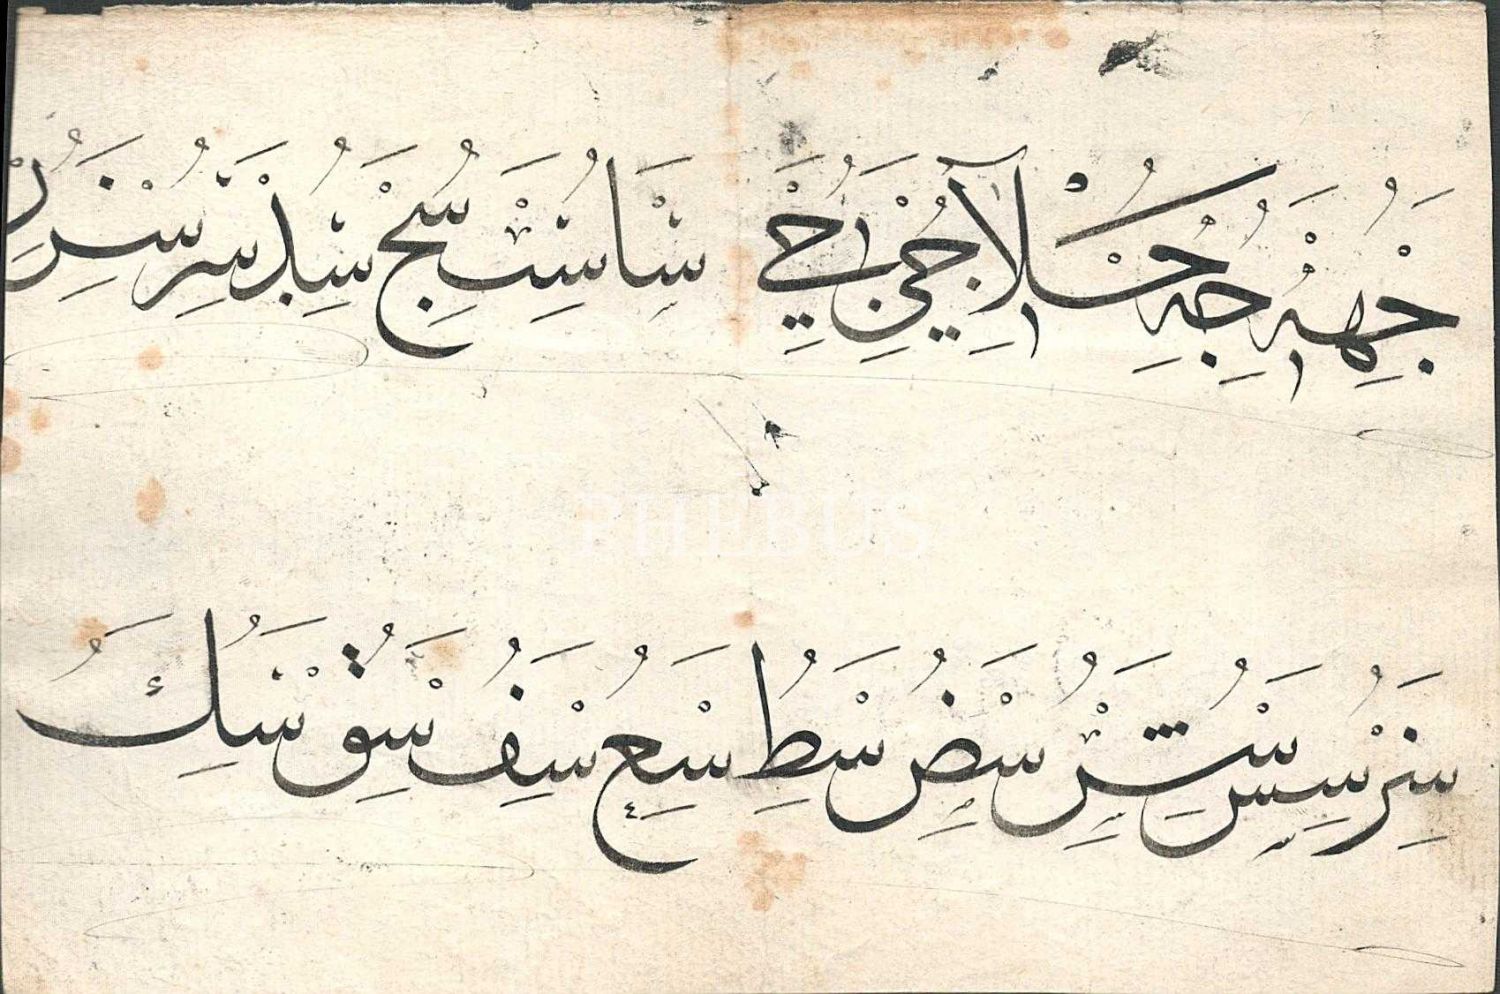 جهه جه جلا جي جي سا سب سج سد سر سر
سر سس سض سط سع سف سق سك
PHEBUS